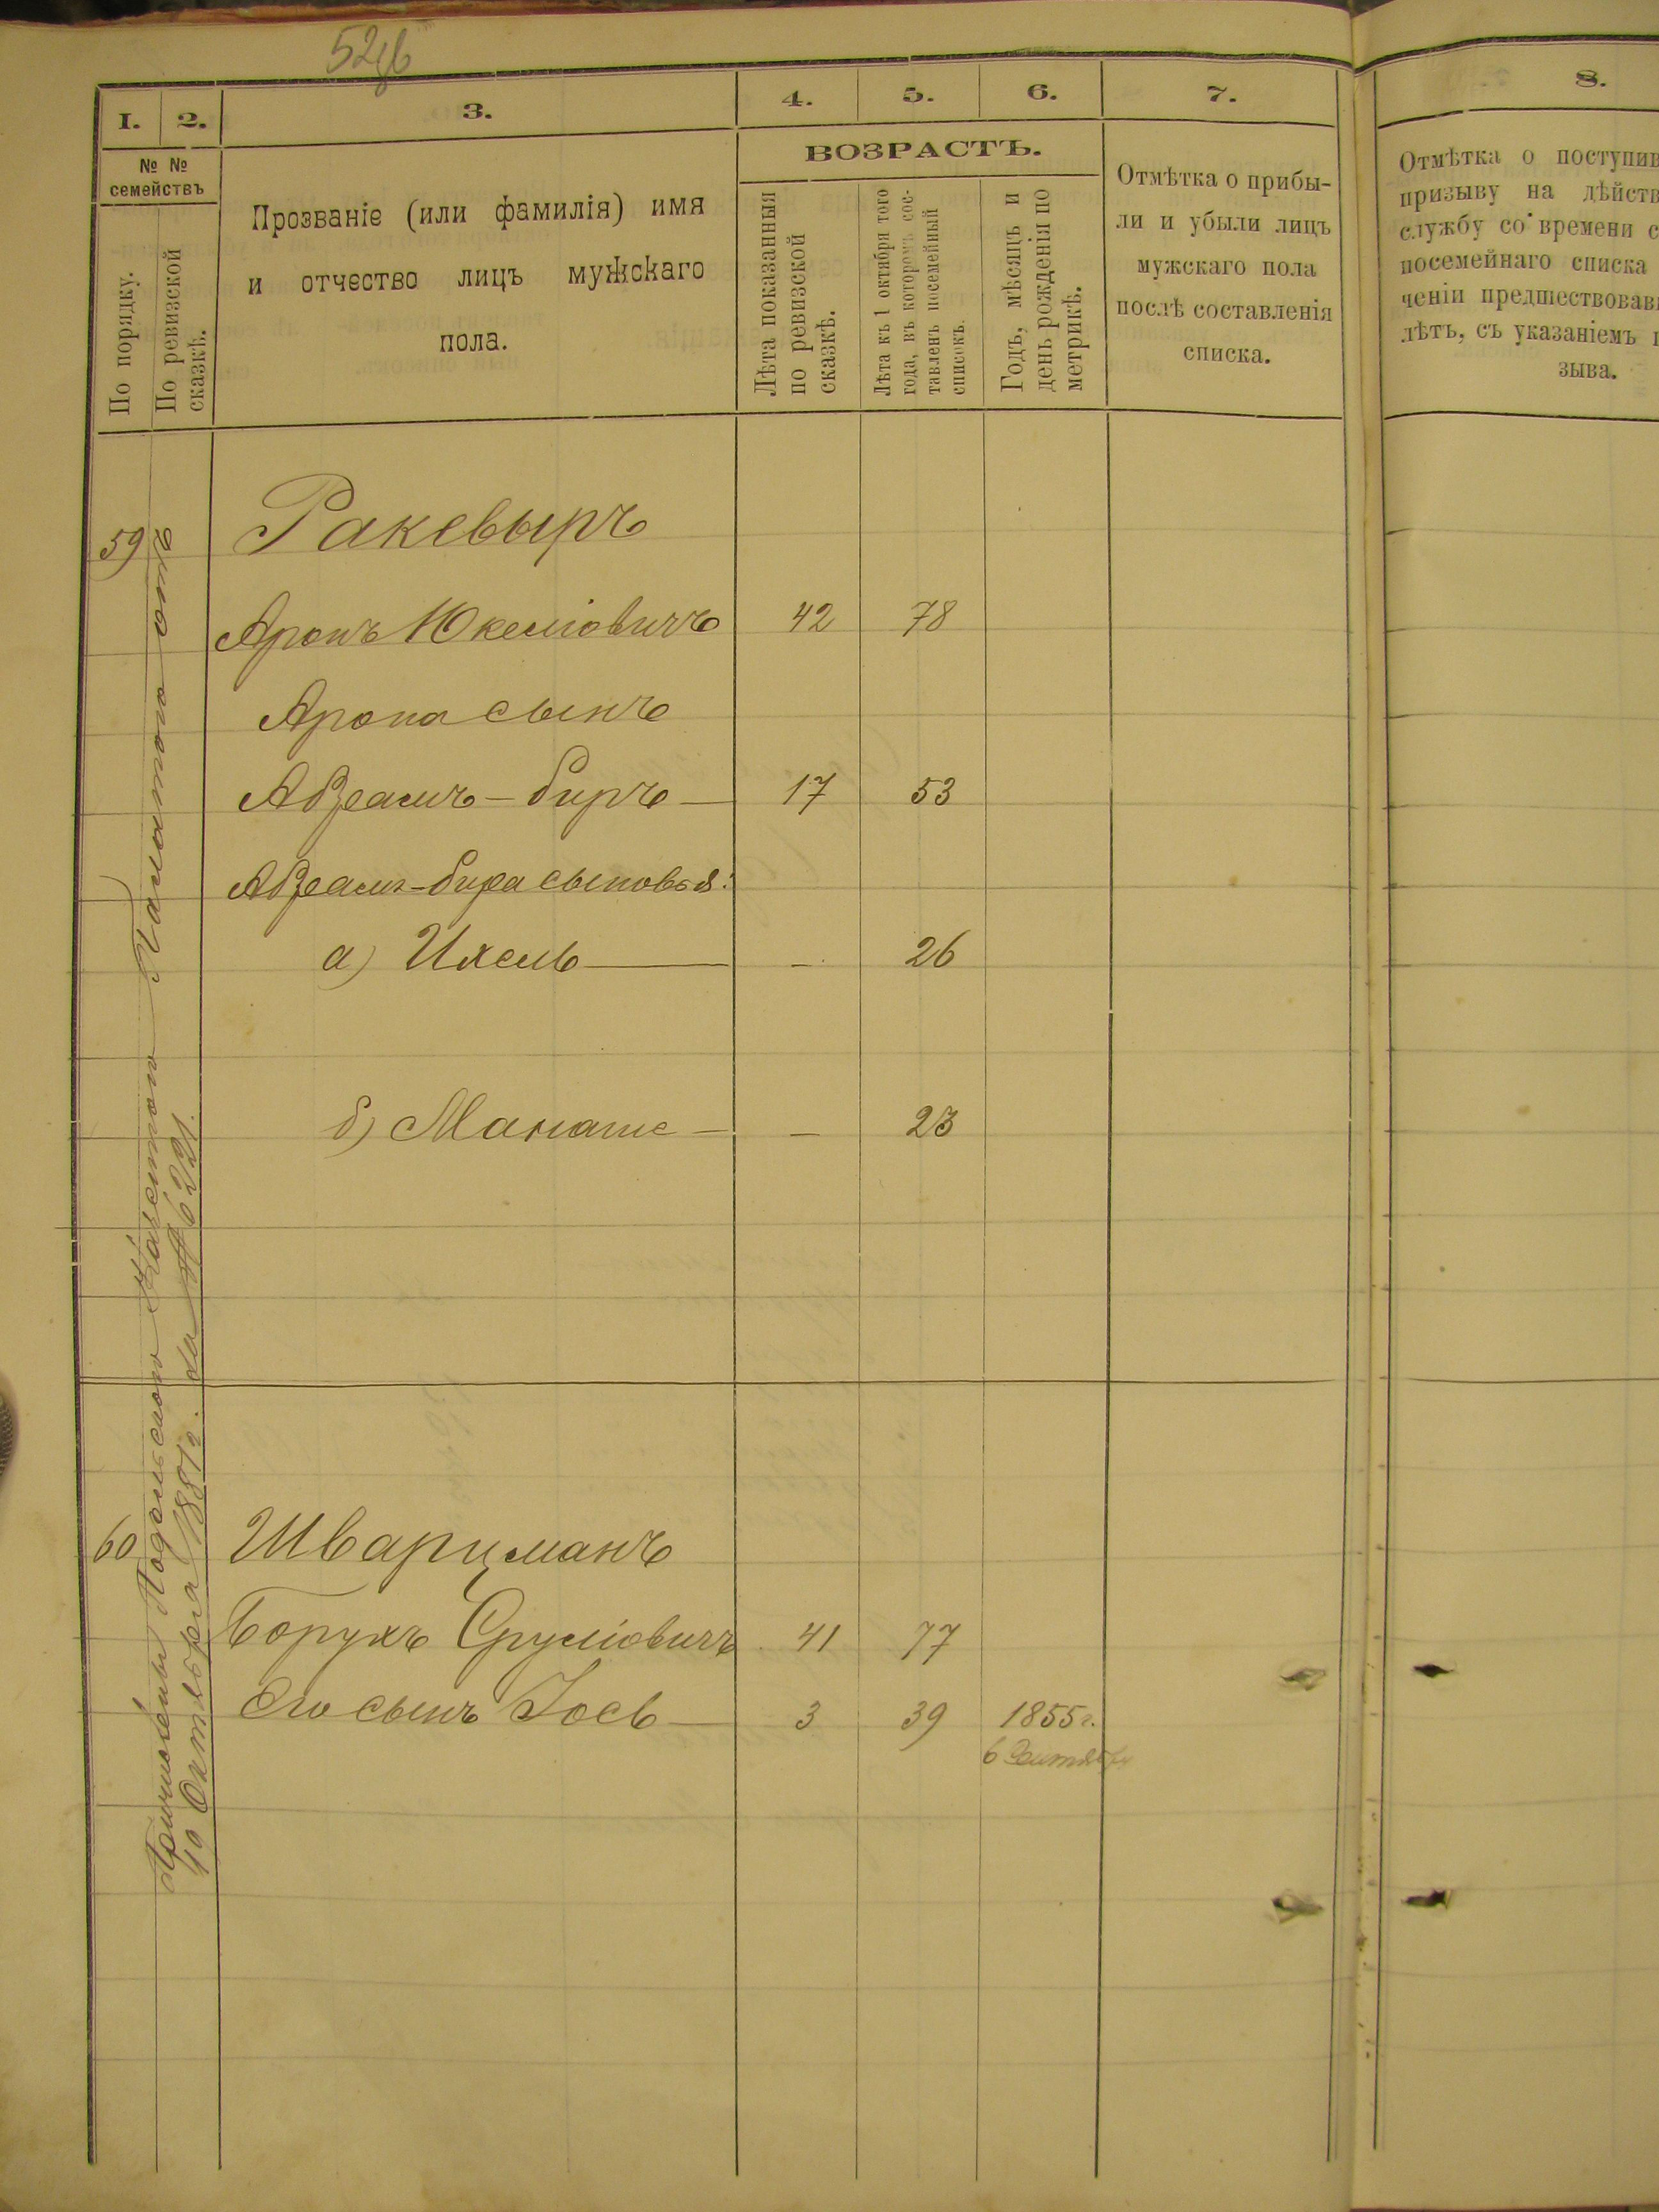 1. 2. 3. 4. 5. 6. 7. 8.
№ №
семействъ
По порядку.
По ревизской
сказкѣ.
Прозваніе (или фамилія) имя
и отчество лицъ мужскаго
пола.
ВОЗРАСТЪ.
Лѣта показанныя
по ревизской
сказкѣ.
Лѣта къ 1 октября того
года, въ которомъ сос-
тавленъ посемейный
списокъ.
Годъ, мѣсяцъ и
день рожденія по
метрикѣ.
Отмѣтка о прибы-
ли и убыли лицъ
мужскаго пола
послѣ составленія
списка.
Отмѣтка о поступив
призыву на дѣйств
службу со времени с
посемейнаго списка
ченіи предшествовав
лѣтъ, съ указаніемъ п
зыва.
Причислены Подольскою Казенною Палатою отъ
10 Октября 1887 г. за № 6221.
59 Ракевыръ
Аронъ Юкелiовичъ 42 78
Арона сынъ
Авраамъ-биръ — 17 53
Авраамъ-бира сыновья:
а) Ихель — – 26
б) Манаше — – 23
60 Шварцманъ
Борухъ Сруліовичъ 41 77
Его сынъ Іось — 3 39 1855 г.